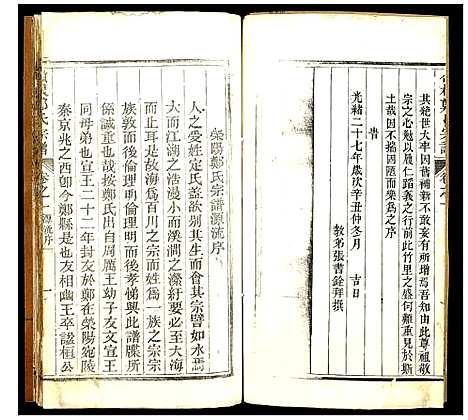 其絶世大率因舊補新不敢妄有所增爲吾知由此尊祖敬
宗之心勉以展仁蹈義之行前此竹里之盛何難重見于此
土哉因不揣固陋而樂爲之序
旹
光緒二十七年歲次辛丑仲冬月 吉日
敎弟張書銓拜撰
滎陽鄭氏宗譜源流序
人之受姓定氏蓋欲别其生而會其宗譬如水焉
大而江湖之浩漫小而溪澗之瀠紆要必至大海
而止耳是故海爲百川之宗而姓爲一族之宗宗
族敦而後倫理明而後孝悌興此譜牒所
係誠重也鄭氏出自周厲王幼子友文宣王
同母弟也宣王二十二年封友於鄭在滎陽宛陵
秦京兆之西卽今鄭縣是也友相幽王卒諡桓公
鄭氏宗譜 卷之一 源流序